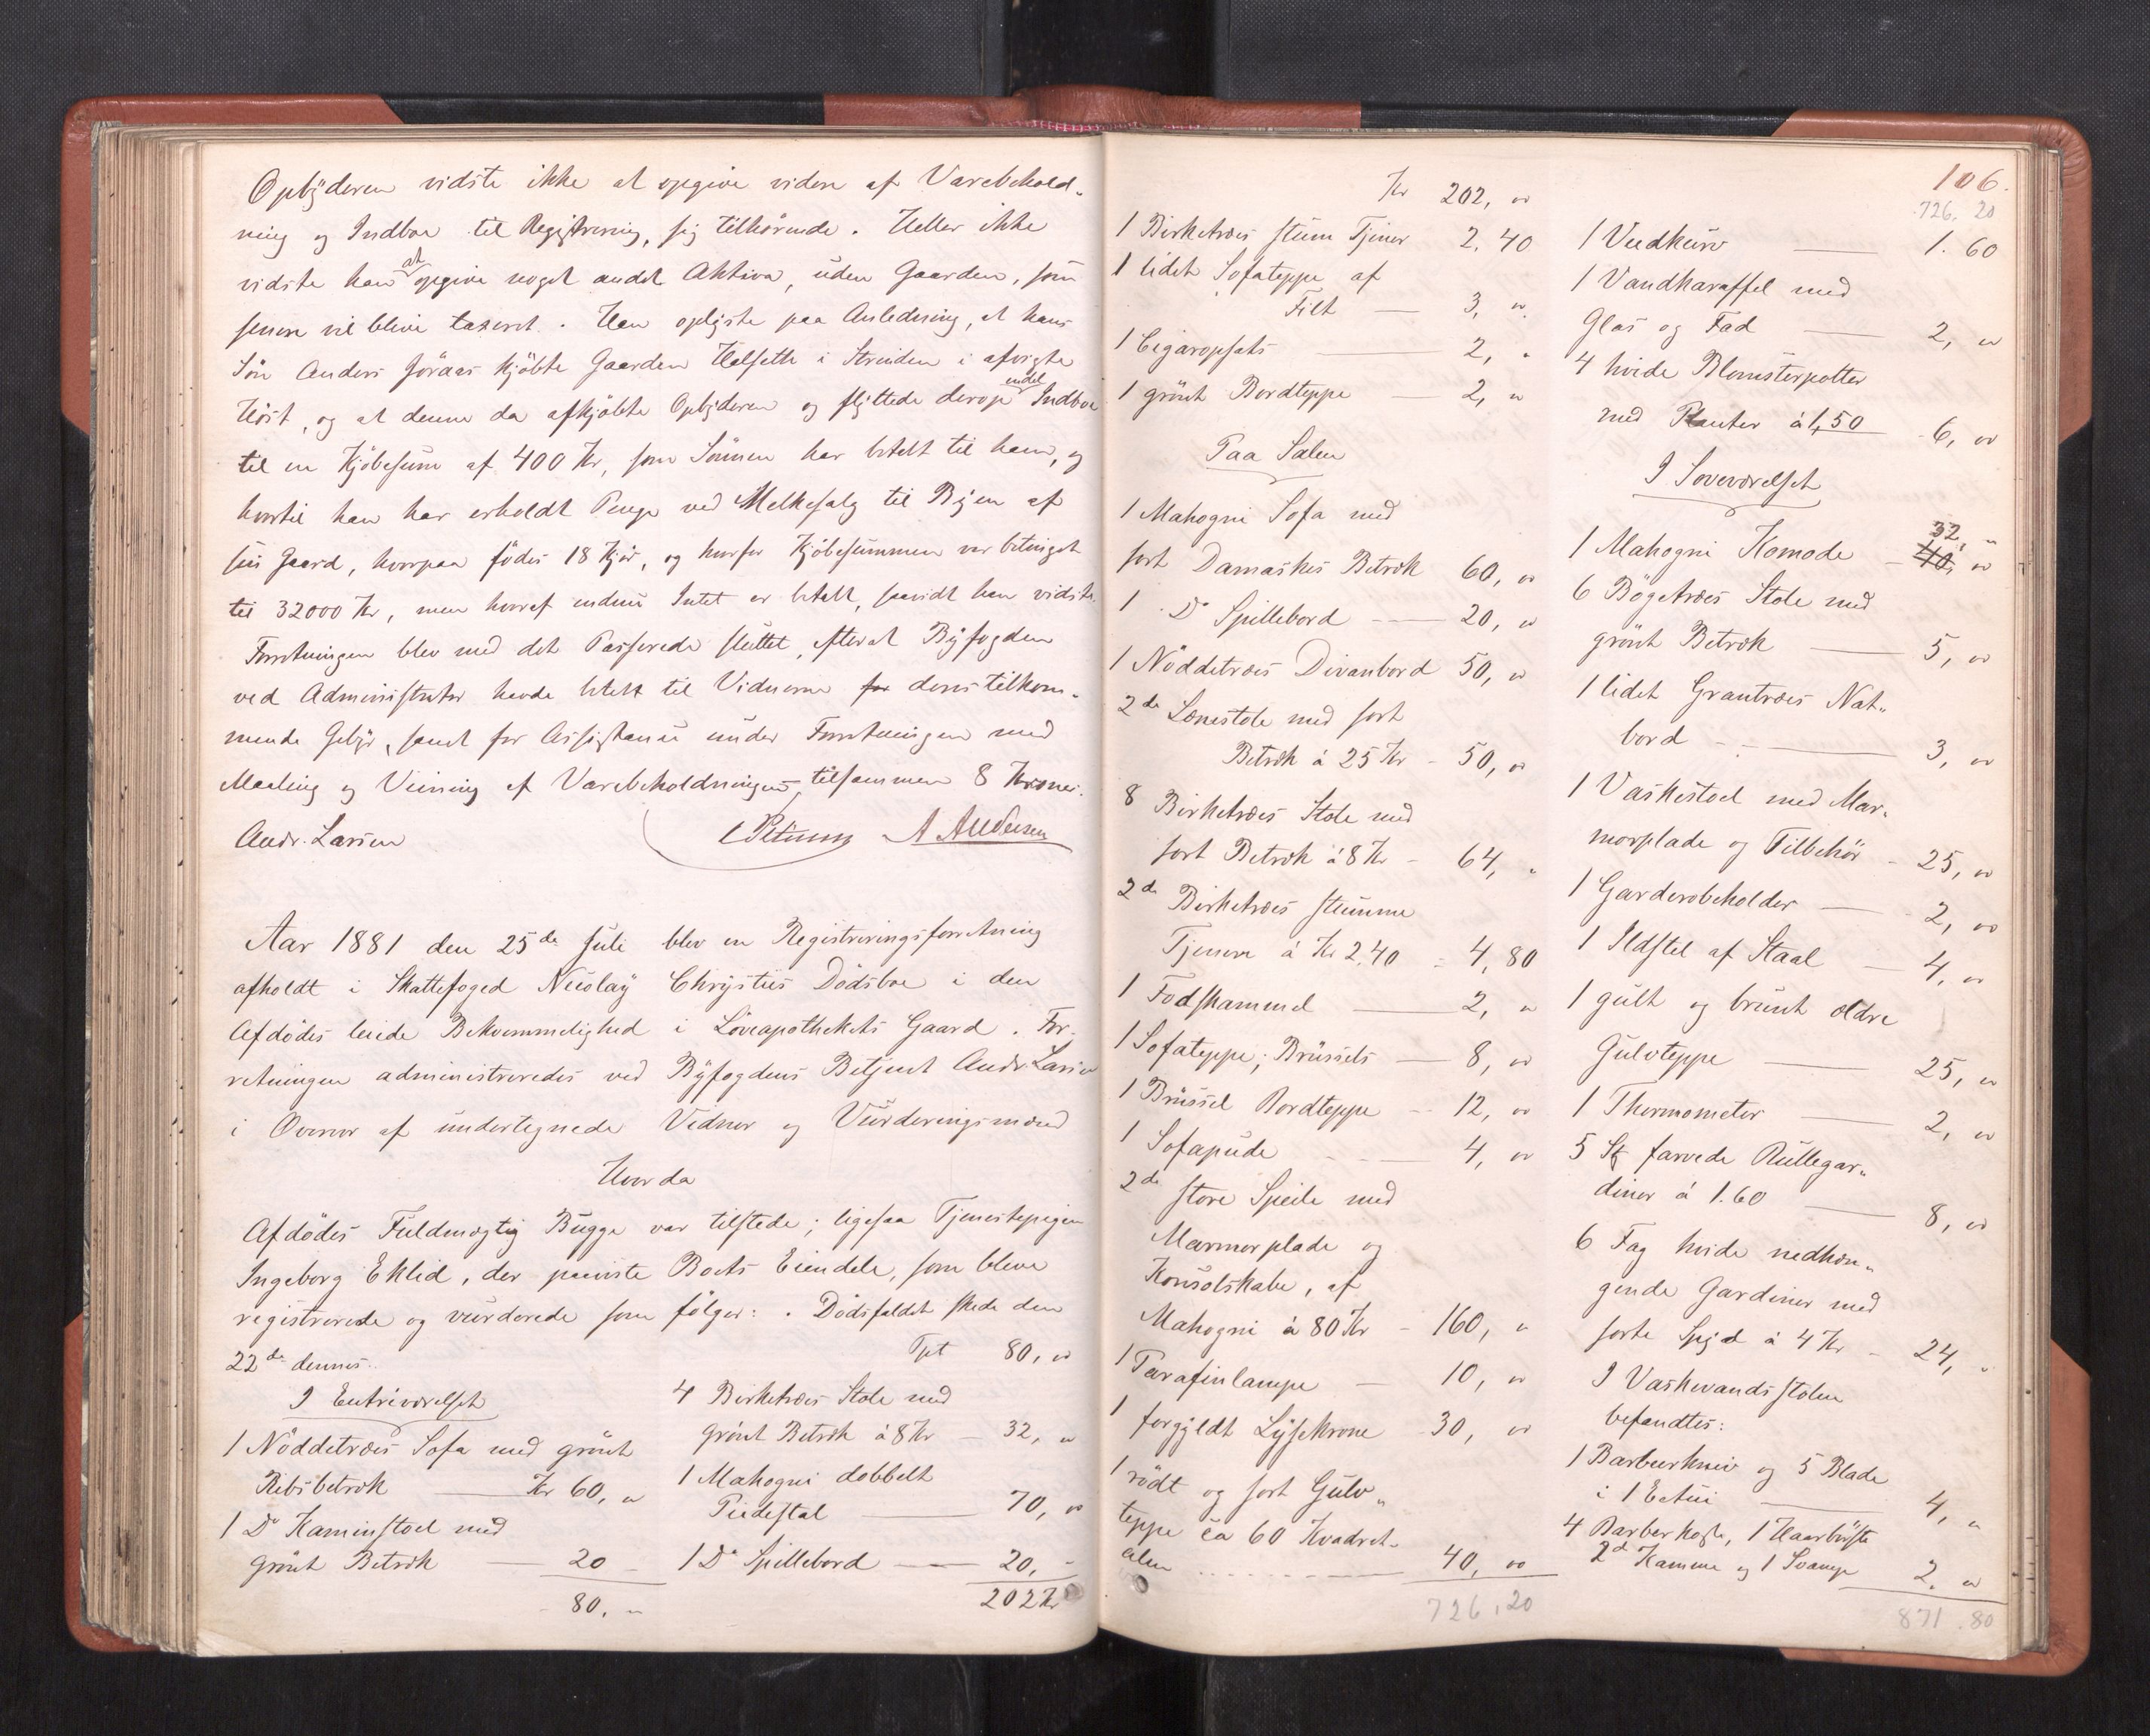 Opbÿderen vidste ikke at opgive videre af Varebehold„
ning og Indboe til Registrering, sig tilhørende. Heller ikke
vidste han at opgive noget andet Aktiva, uden Gaarden, som
senere vil blive taxeret. Han oplÿste paa Anledning, at hans
Søn Anders Jøraas kjøbte Gaarden Halseth i Strinden i afvigte
Høst, og at denne da afkjøbte Opbÿderen og flÿttede derop endel Indboe
til en Kjøbesum af 400 Kr, som Sønnen har betalt til ham, og
hvortil han har erholdt Penge ved Melkesalg til Bÿen af
sin Gaard, hvorpaa fødes 18 Kjør, og hvorfor Kjøbesummen var betinget
til 32000 Kr, men hvoraf endnu Intet er betalt, saavidt han vidste.
Forretningen blev med det Passerede sluttet, efterat Bÿfogden
ved Administrator havde betalt til Vidnerne for deres tilkom„
mende Gebÿr, samt for Assistance under Forretningen med
Maaling og Veining af Varebeholdningen, tilsammen 8 Kroner.
Andr. Larsen A Andersen
Aar 1881 den 25de Juli blev en Registreringsforretning
afholdt i Skattefoged Nicolaÿ Chrÿsties Dødsboe i den
Afdødes leiede Bekvemmelighed i Løveapothekets Gaard. For„
retningen administreredes ved Bÿfogdens Betjent Andr. Larsen
i Overvær af undertegnede Vidner og Vurderingsmænd
Hvorda
Afdødes Fuldmægtig Bugge var tilstede; ligesaa Tjenestepigen
Ingeborg Eklid, der paaviste Boets Eiendele, som bleve
registrerede og vurderede som følger: . Dødsfaldet skede den
22de dennes.
I Entreværelset
1 Nøddetræes Sofa med grønt
Ribsbetræk Kr 60, "
1 Do Kaminstoel med
grønt Betræk 20
80, "
Tpt 80, "
4 Birketræes Stole med
grønt Betræk à 8 Kr 32, "
1 Mahogni dobbelt
Piedestal 70, "
1 Do Spillebord 20, "
202 Kr
Kr 202, "
1 Birketræes stum Tjener 2.40
1 lidet Sofateppe af
Filt 3, "
1 Cigaropsats 2, "
1 grønt Bordteppe 2, "
Paa Salen
1 Mahogni Sofa med
sort Damaskes Betræk 60, "
1 Do Spillebord 20, "
1 Nøddetræes Divanbord 50, "
2de Lænestole med sort
Betræk à 25 Kr 50, "
8 Birketræes Stole med
sort Betræk à 8 Kr 64, "
2de Birketræes stumme
Tjenere à Kr 2.40 4,80
1 Fodskammel 2, "
1 Sofateppe, Brüssels 8, "
1 Brüssel Bordteppe 12, "
1 Sofapude 4, "
2de store Speile med
Marmorplade og
Konsolskabe, af
Mahogni à 80 Kr 160, "
1 Parafinlampe 10, "
1 forgÿldt Lÿsekrone 30, "
1 rødt og sort Gulv„
teppe ca 60 Kvadrat„
alen 40, "
726,20
106.
726,20
1 Vedkurv 1.60
1 Vandkaraffel med
Glas og Fad 2, "
4 hvide Blomsterpotter
med Planter à 1,50 6, "
I Soveværelset
32, "
1 Mahogni Komode 40, "
6 Bøgetræes Stole med
grønt Betræk 5, "
1 lidet Grantræes Nat„
bord 3, "
1 Vaskestoel med Mar„
morplade og Tilbehør 25, "
1 Garderobeholder 2, "
1 Ildstel af Staal 4, "
1 gult og brunt ældre
Gulvteppe 25, "
1 Thermometer 2, "
5 St farvede Rullegar„
diner à 1.60 8, "
6 Fag hvide nedhæn„
gende Gardiner med
sorte Spÿd à 4 Kr 24, "
I Vaskevandsstolen
befandtes:
1 Barbeerkniv og 5 Blade
i 1 Eetui 4, "
4 Barberkoste, 1 Haarbørste
2de Kamme og 1 Svamp 2, "
871.80